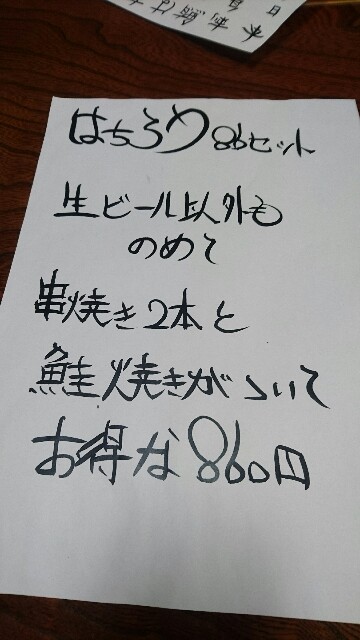 はちろく86セット
生ビール以外も
のめて
串焼き2本と
鮭焼きがついて
お得な860円